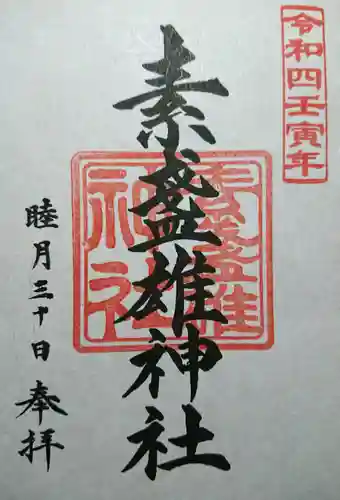 令和四壬寅年
素盞雄神社
素盞雄
神社
睦月三十日
奉拝